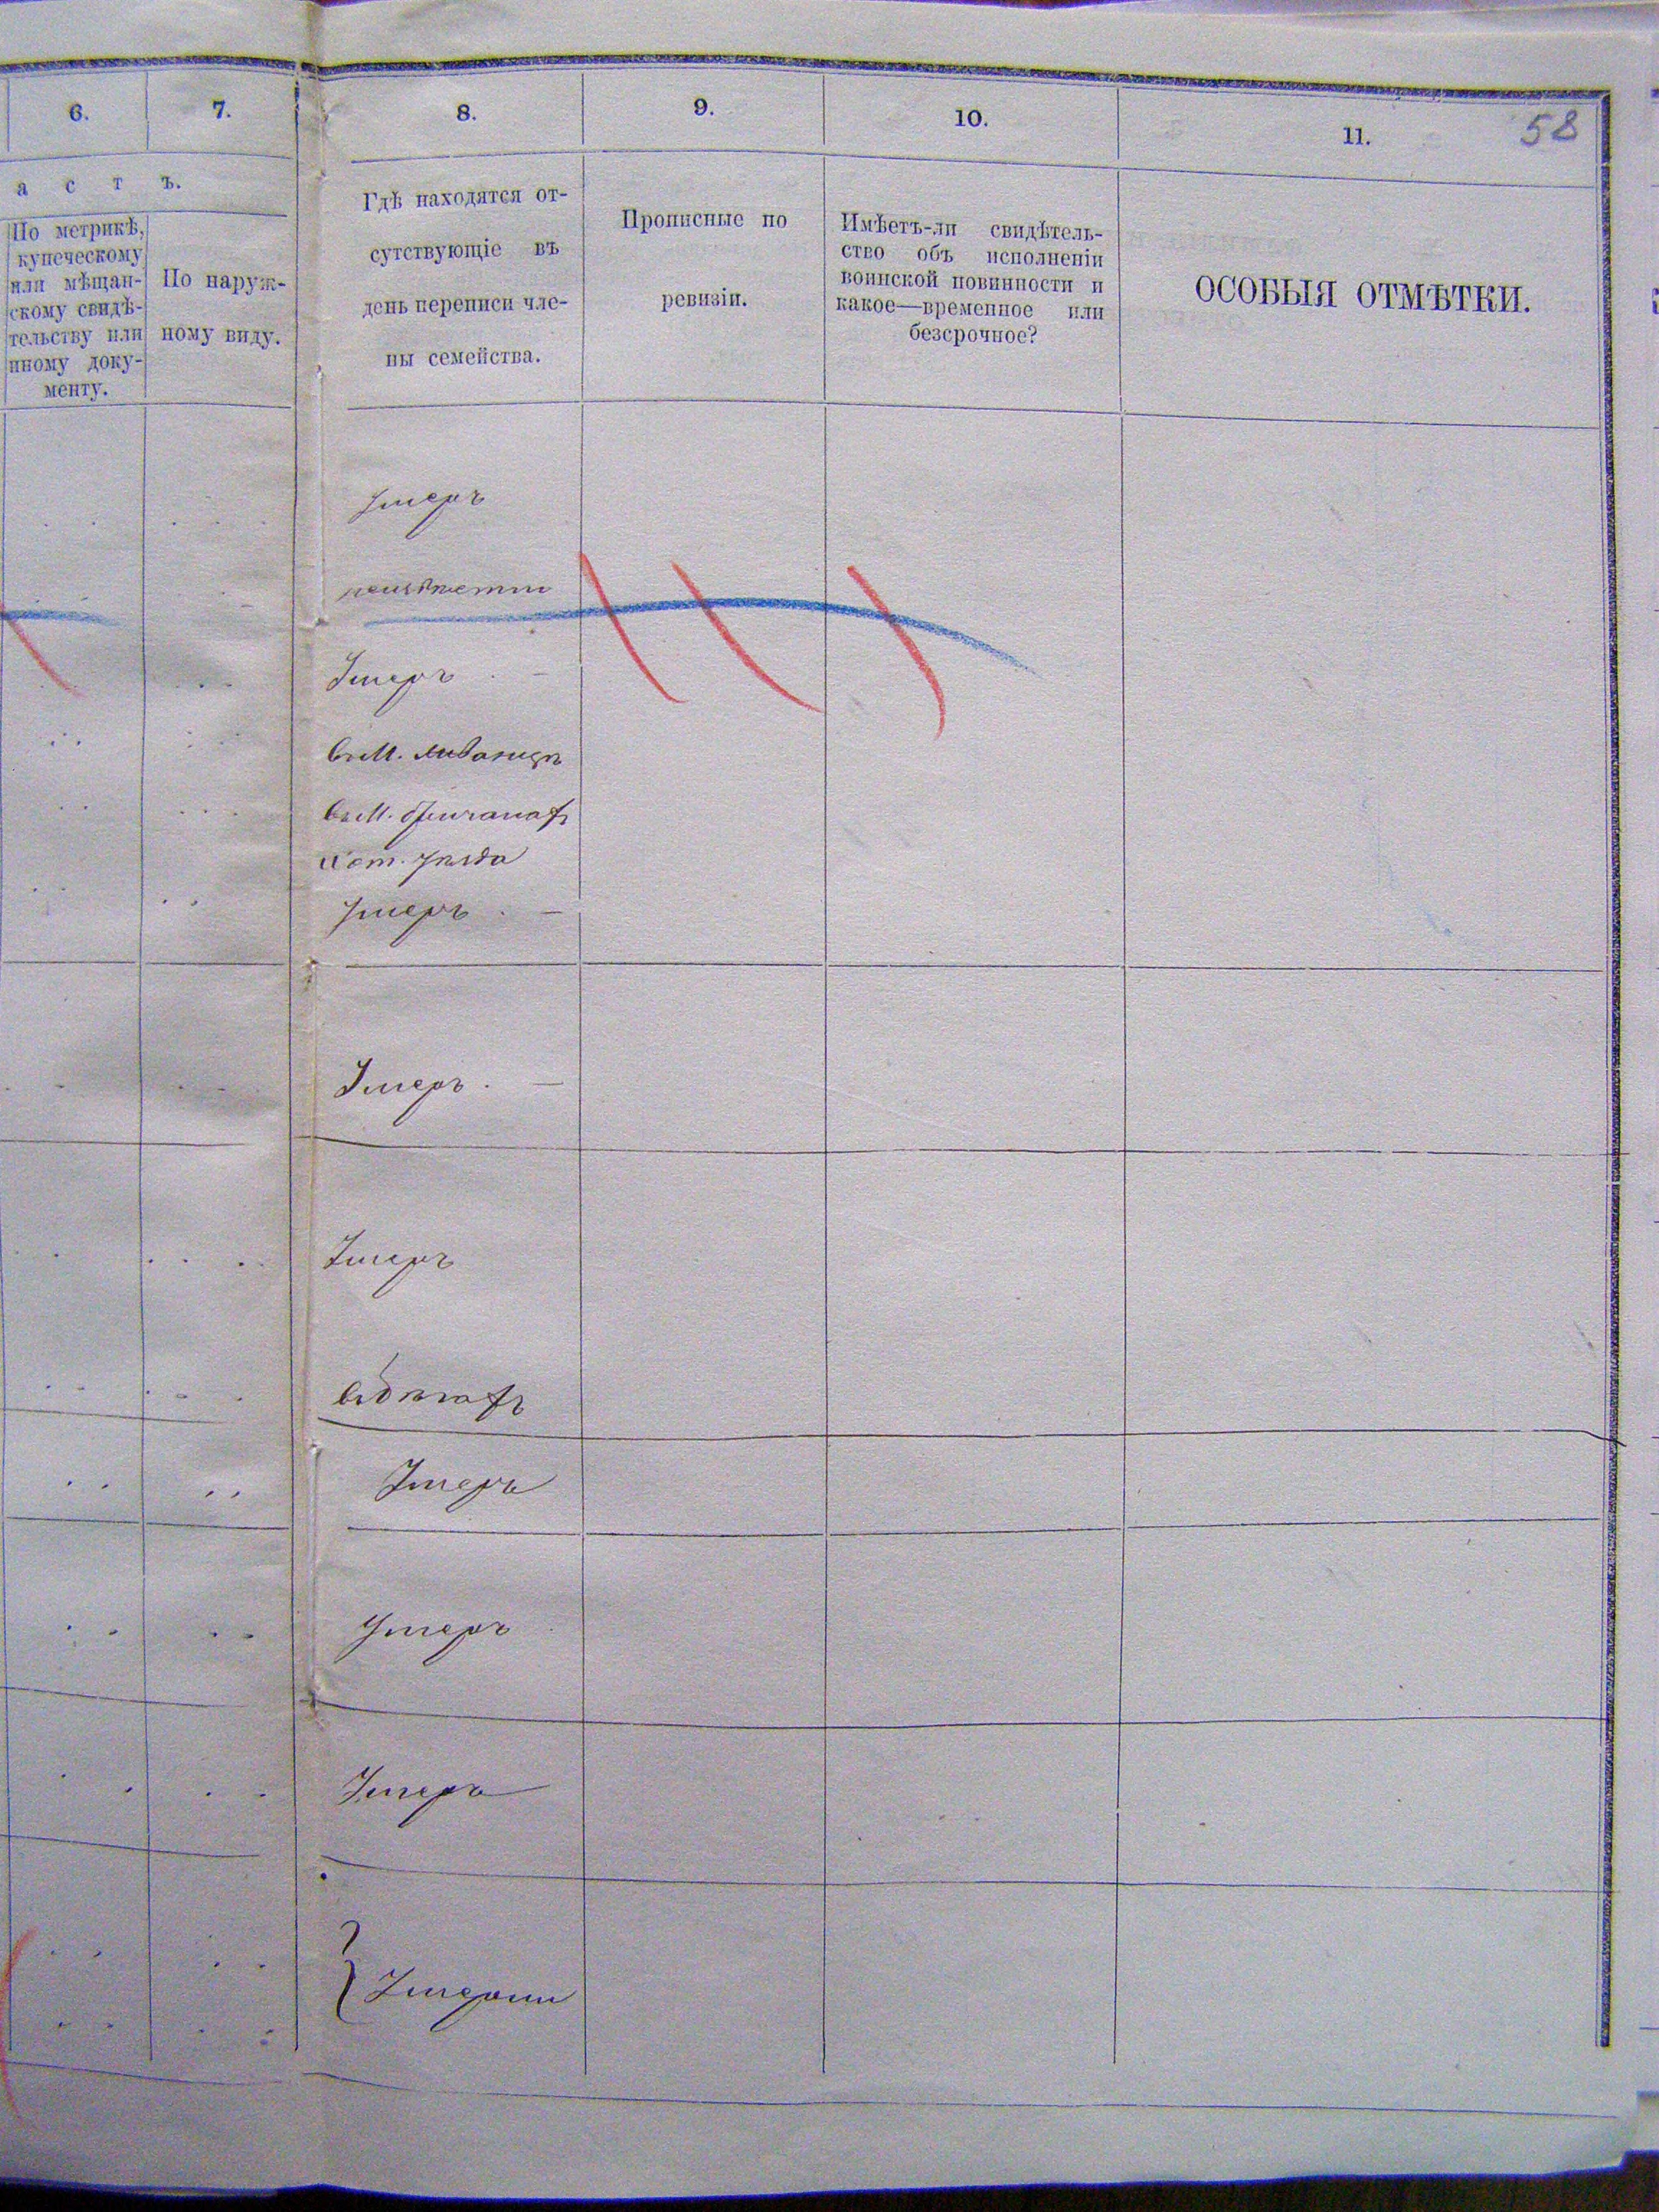 6.
7.
8.
9.
10.
11.
58
а с т ъ.
По метрикѣ,
купеческому
или мѣщан-
скому свидѣ-
тельству или
иному доку-
менту.
По наруж-
ному виду.
Гдѣ находятся от-
сутствующіе въ
день переписи чле-
ны семейства.
Прописные по
ревизіи.
Имѣетъ-ли свидѣтель-
ство объ исполненіи
воинской повинности и
какое—временное или
безсрочное?
ОСОБЫЯ ОТМѢТКИ.
Умеръ
Умеръ
въ М.
въ М. Бричанахъ
Умеръ
Умеръ
Умеръ
въ бѣгахъ
Умеръ
Умеръ
Умеръ
Умерши